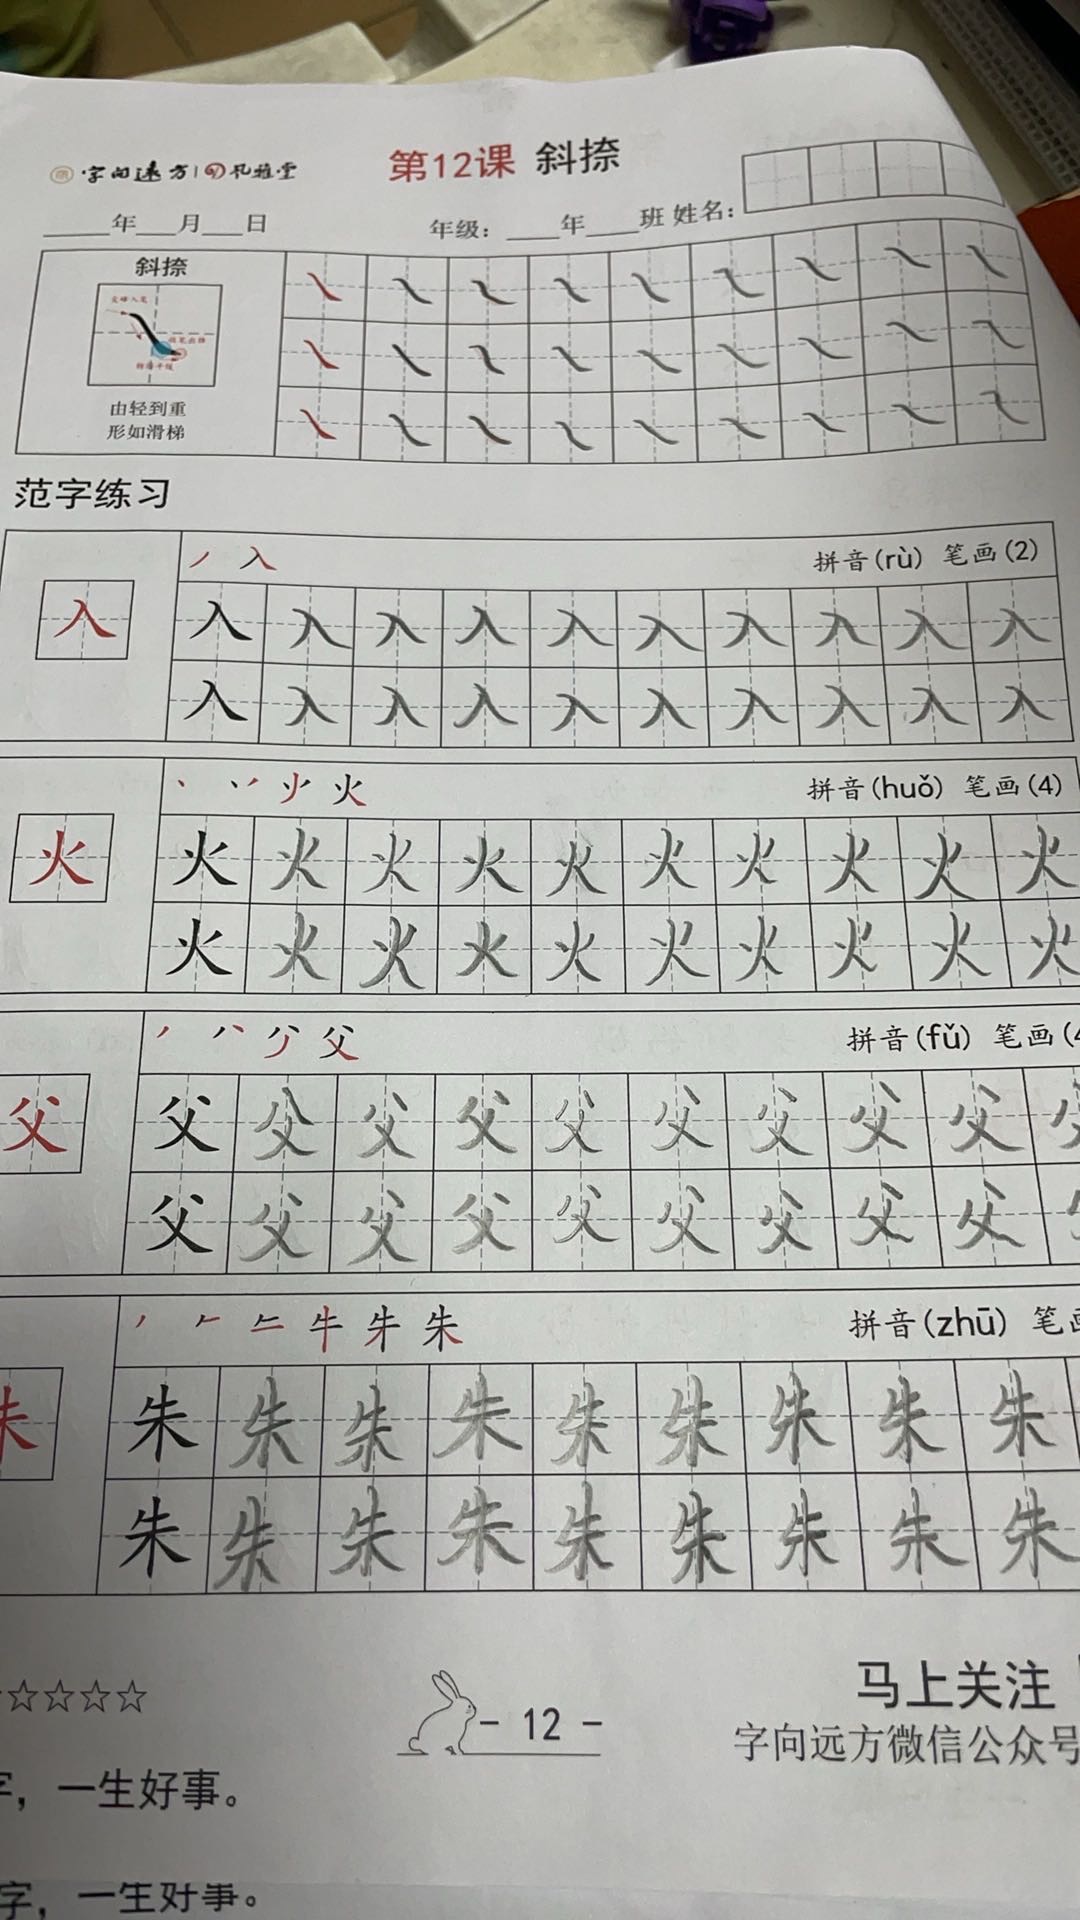 字向远方 | 孔雅堂
第12课 斜捺
____年___月___日 年级：____年____班 姓名：
斜捺
由轻到重
形如滑梯
范字练习
丿 入 拼音(rù) 笔画(2)
入 入 入 入 入 入 入 入 入 入 入
入 入 入 入 入 入 入 入 入 入
火 拼音(huǒ) 笔画(4)
火 火 火 火 火 火 火 火 火 火 火
火 火 火 火 火 火 火 火 火 火
父 拼音(fǔ) 笔画(4
父 父 父 父 父 父 父 父 父 父
父 父 父 父 父 父 父 父 父
牛 朱 拼音(zhū) 笔画
朱 朱 朱 朱 朱 朱 朱 朱 朱 朱
朱 朱 朱 朱 朱 朱 朱 朱 朱
☆☆☆☆ - 12 - 马上关注
字向远方微信公众号
字，一生好事。
字，一生好事。